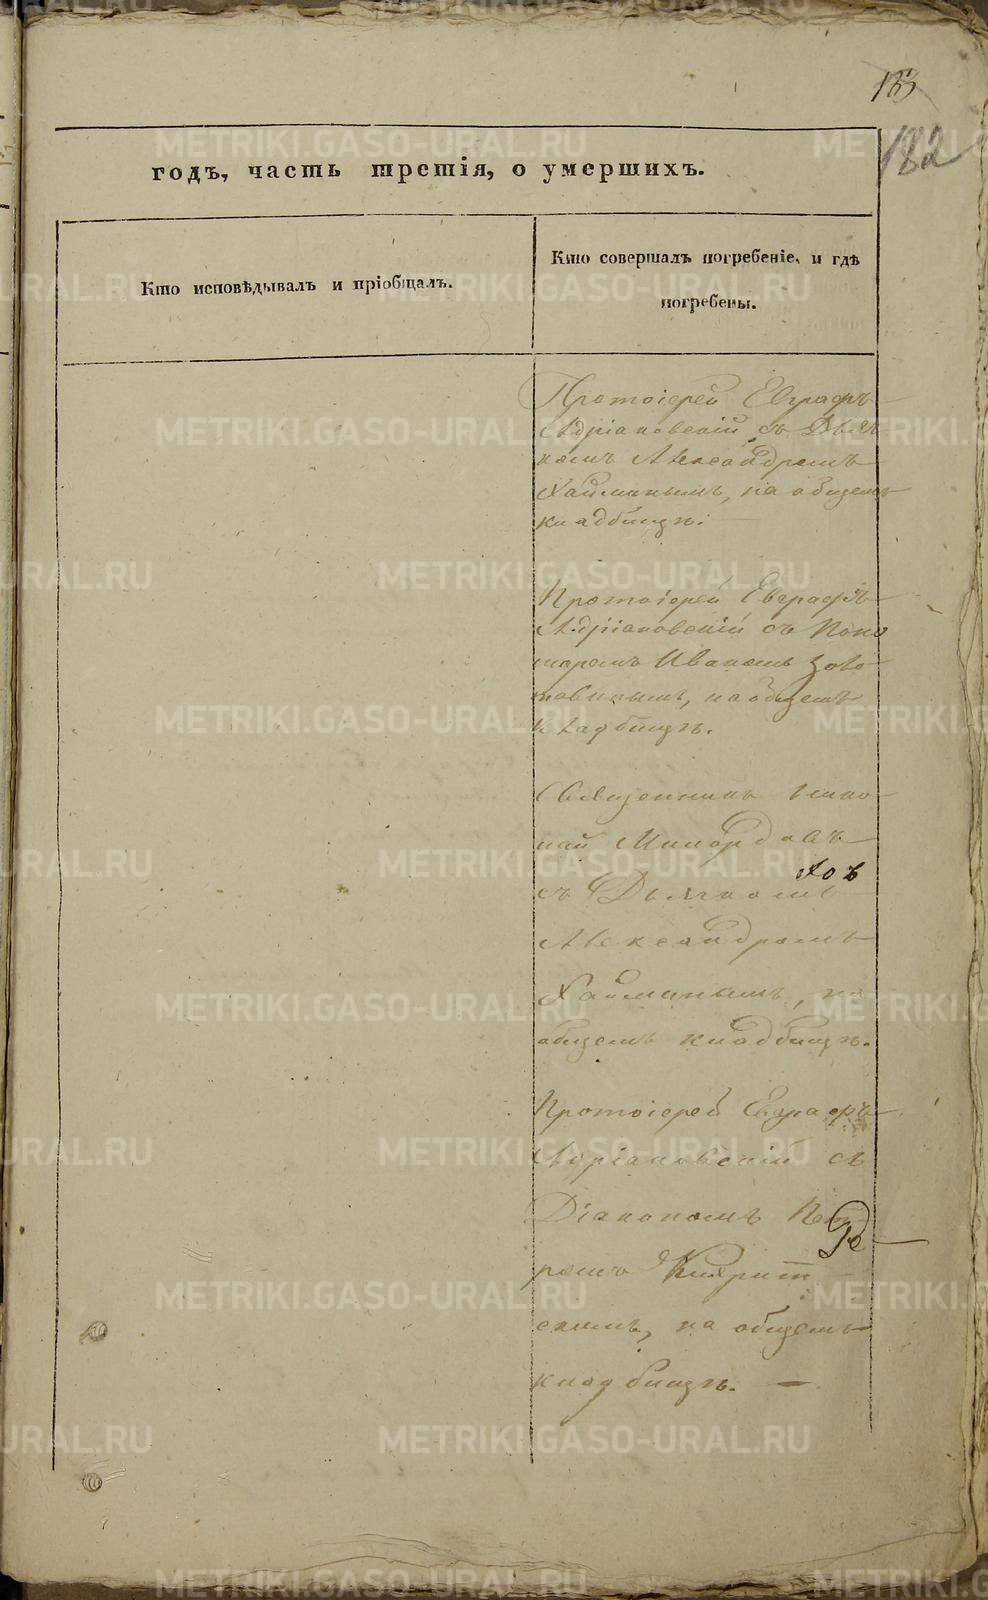 182
годъ, часть третія, о умершихъ.
Кто исповѣдывалъ и пріобщалъ.
Кто совершалъ погребеніе, и гдѣ
погребены.
Протоіерей Евграфъ
Адріановскій съ Дьяч
комъ Александромъ
Хайминымъ, на общемъ
кладбищѣ.
Протоіерей Евграфъ
Адріановскій съ Поно
маремъ Иваномъ Золо
тавинымъ, на общемъ
кладбищѣ.
Священникъ
Милордовъ
съ Дьячкомъ
Александромъ
Хайминымъ, на
общемъ кладбищѣ.
Протоіерей Евграфъ
Адріановскій съ
Діакономъ Пет
ромъ
скимъ, на общемъ
кладбищѣ. —
METRIKI.GASO-URAL.RU